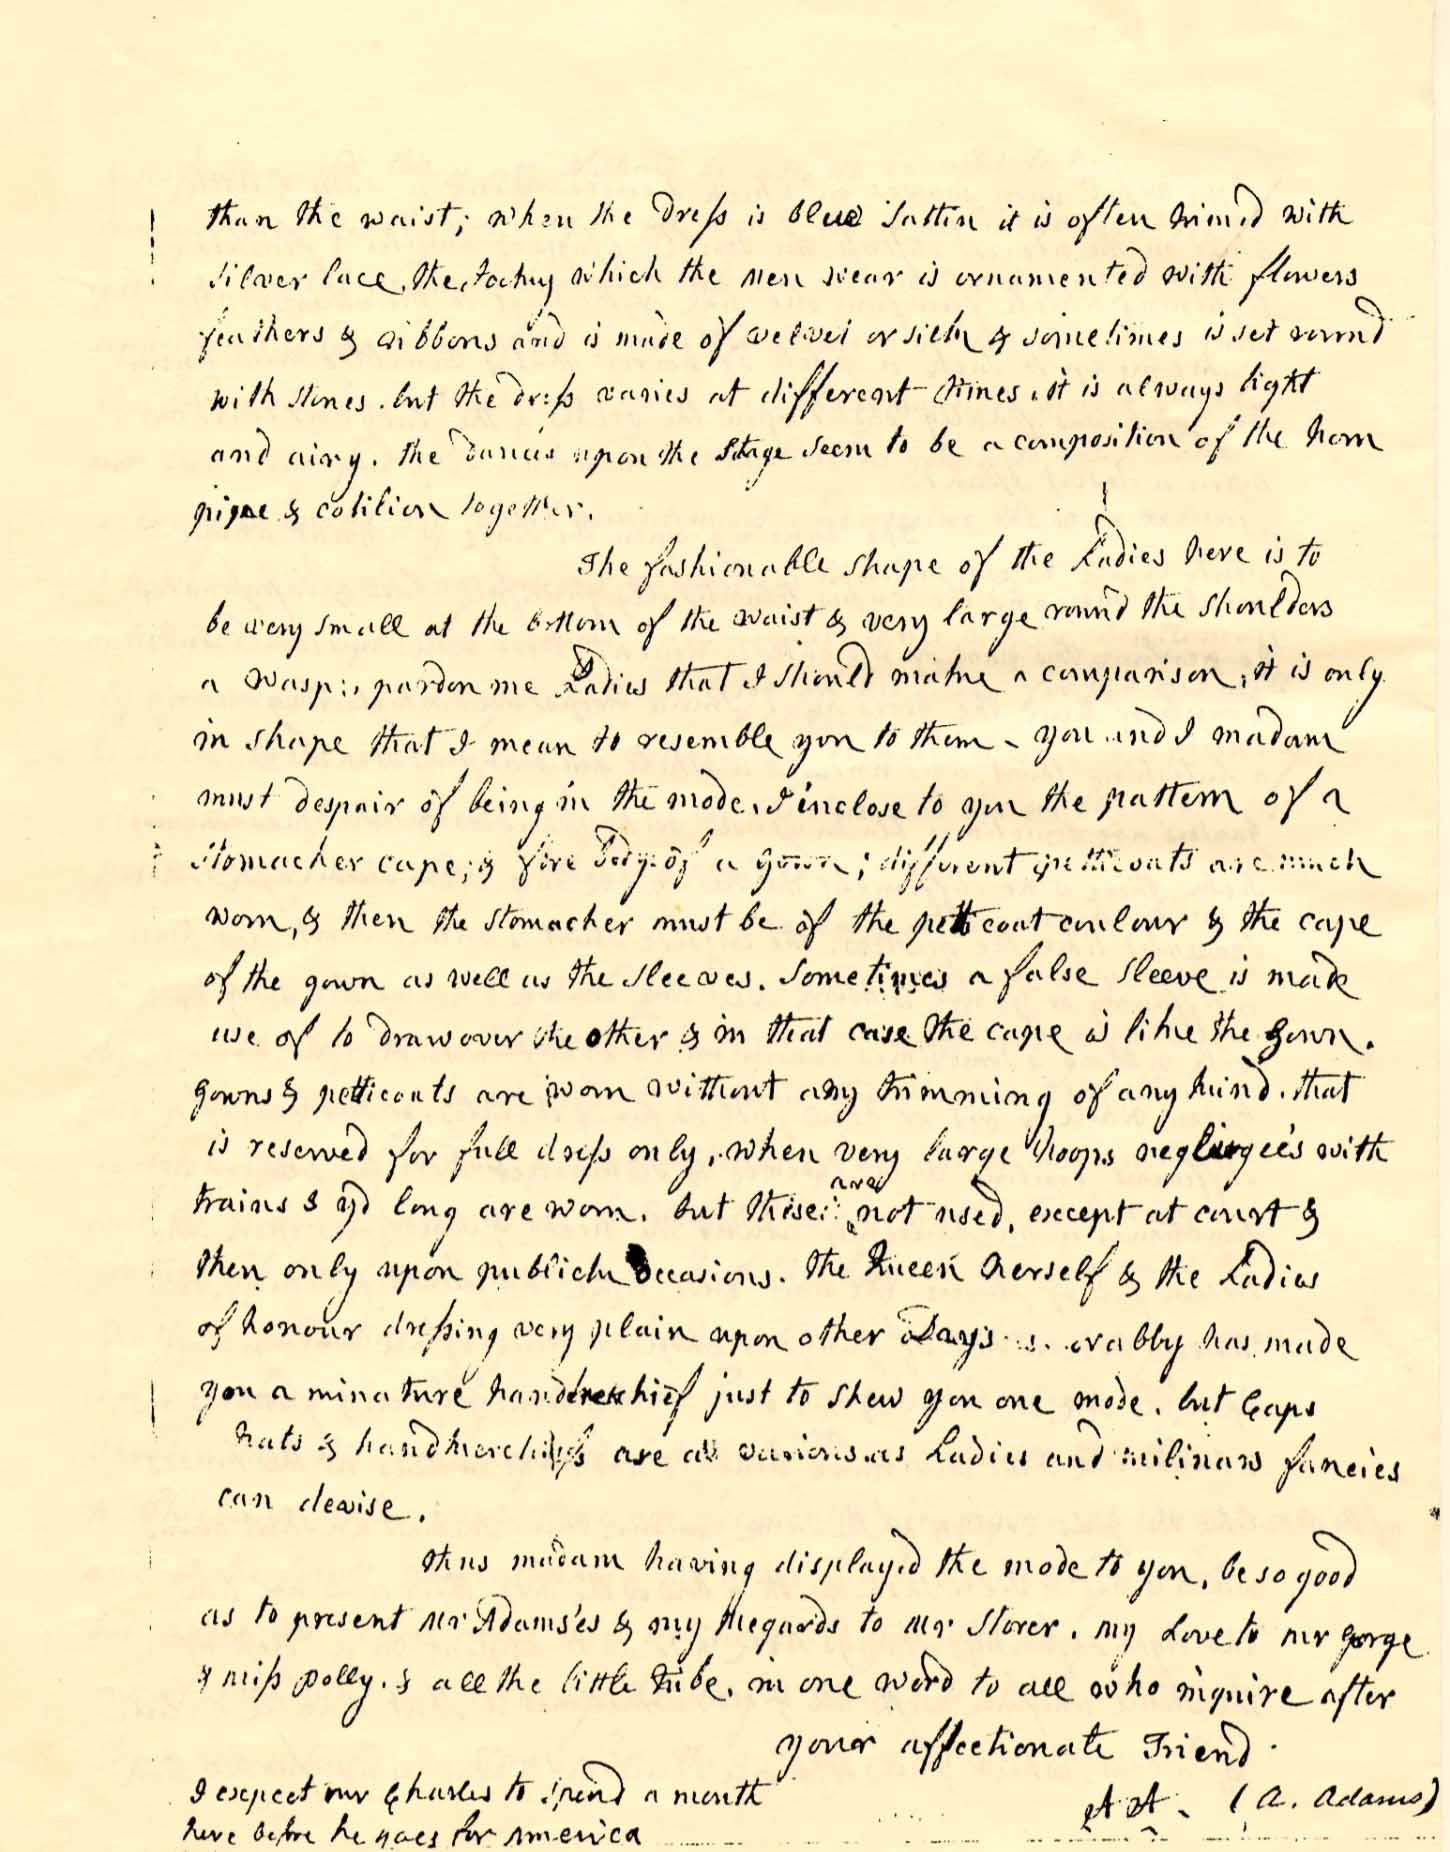 than the waist; when the dress is blue Sattin it is often trimed with
silver lace, the which the Men wear is ornamented with flowers
feathers & ribbons and is made of velvet or silk & sometimes is set round
with stones. but the dress varies at different times, it is always light
and airy. the dances upon the stage seem to be a composition of the horn
pipe & cotilion together.
The fashionable shape of the Ladies here is to
be very small at the bottom of the waist & very large round the shoulders
a wasp:, pardon me Ladies that I should make a comparison, it is only
in shape that I mean to resemble you to them - you and I madam
must despair of being in the mode. I inclose to you the pattern of a
stomacher cape; & fore body of a gown; different petticoats are much
worn, & then the stomacher must be of the petticoat coulour & the cape
of the gown as well as the sleeves. Sometimes a false sleeve is made
use of to draw over the other & in that case the cape is like the gown.
gowns & petticoats are worn without any trimming of any kind. that
is reserved for full dress only, when very large hoops negligee's with
trains 3 yd long are worn. but these are not used, except at court &
then only upon publick occasions. the Queen herself & the Ladies
of honour dressing very plain upon other days. abby has made
you a minature handkerchief just to shew you one mode. but Caps
hats & handkerchiefs are as various as Ladies and milinars fancies
can devise.
thus madam having displayed the mode to you, be so good
as to present Mr Adams'es & my Regards to Mr Storer. my Love to mr gorge
& miss polly. & all the little tribe. in one word to all who inquire after
your affectionate Friend.
A A. (A. Adams)
I expect mr Charles to spend a month
here before he goes for America